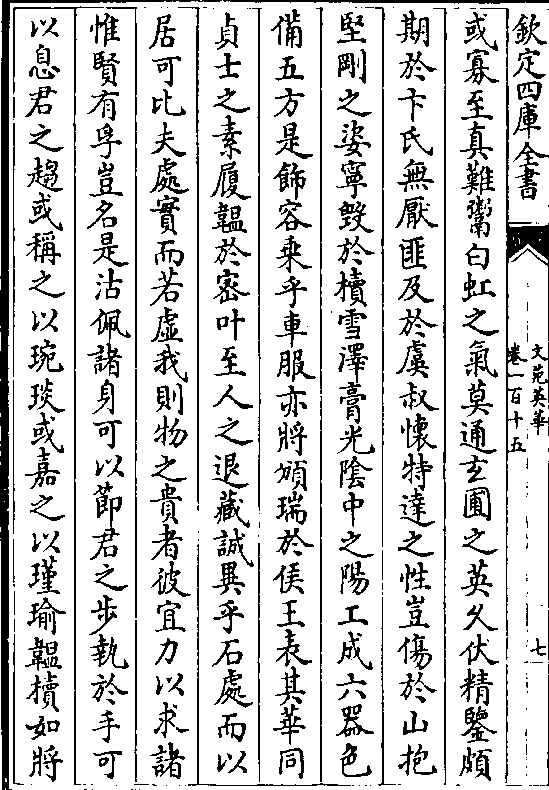 欽定四庫全書
文苑英華
卷一百十五
七
或寡至真難鬻白虹之氣莫通玄圃之英乆伏精鑒頗
期於卞氏無厭匪及於虞叔懷特達之性豈傷於山抱
堅剛之姿寧毁於櫝雪澤膏光陰中之陽工成六器色
備五方是飾容乗乎車服亦將頒瑞於侯王表其華同
貞士之素履韞於宻叶至人之退藏誠異乎石處而以
居可比夫處實而若虛我則物之貴者彼宜力以求諸
惟賢有孚豈名是沽佩諸身可以節君之步執於手可
以息君之趨或稱之以琬琰或嘉之以瑾瑜韞櫝如將